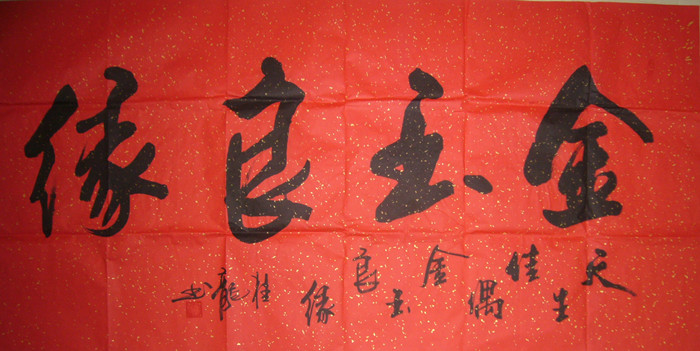 金玉良缘
天生佳偶金玉良缘
桂龍书